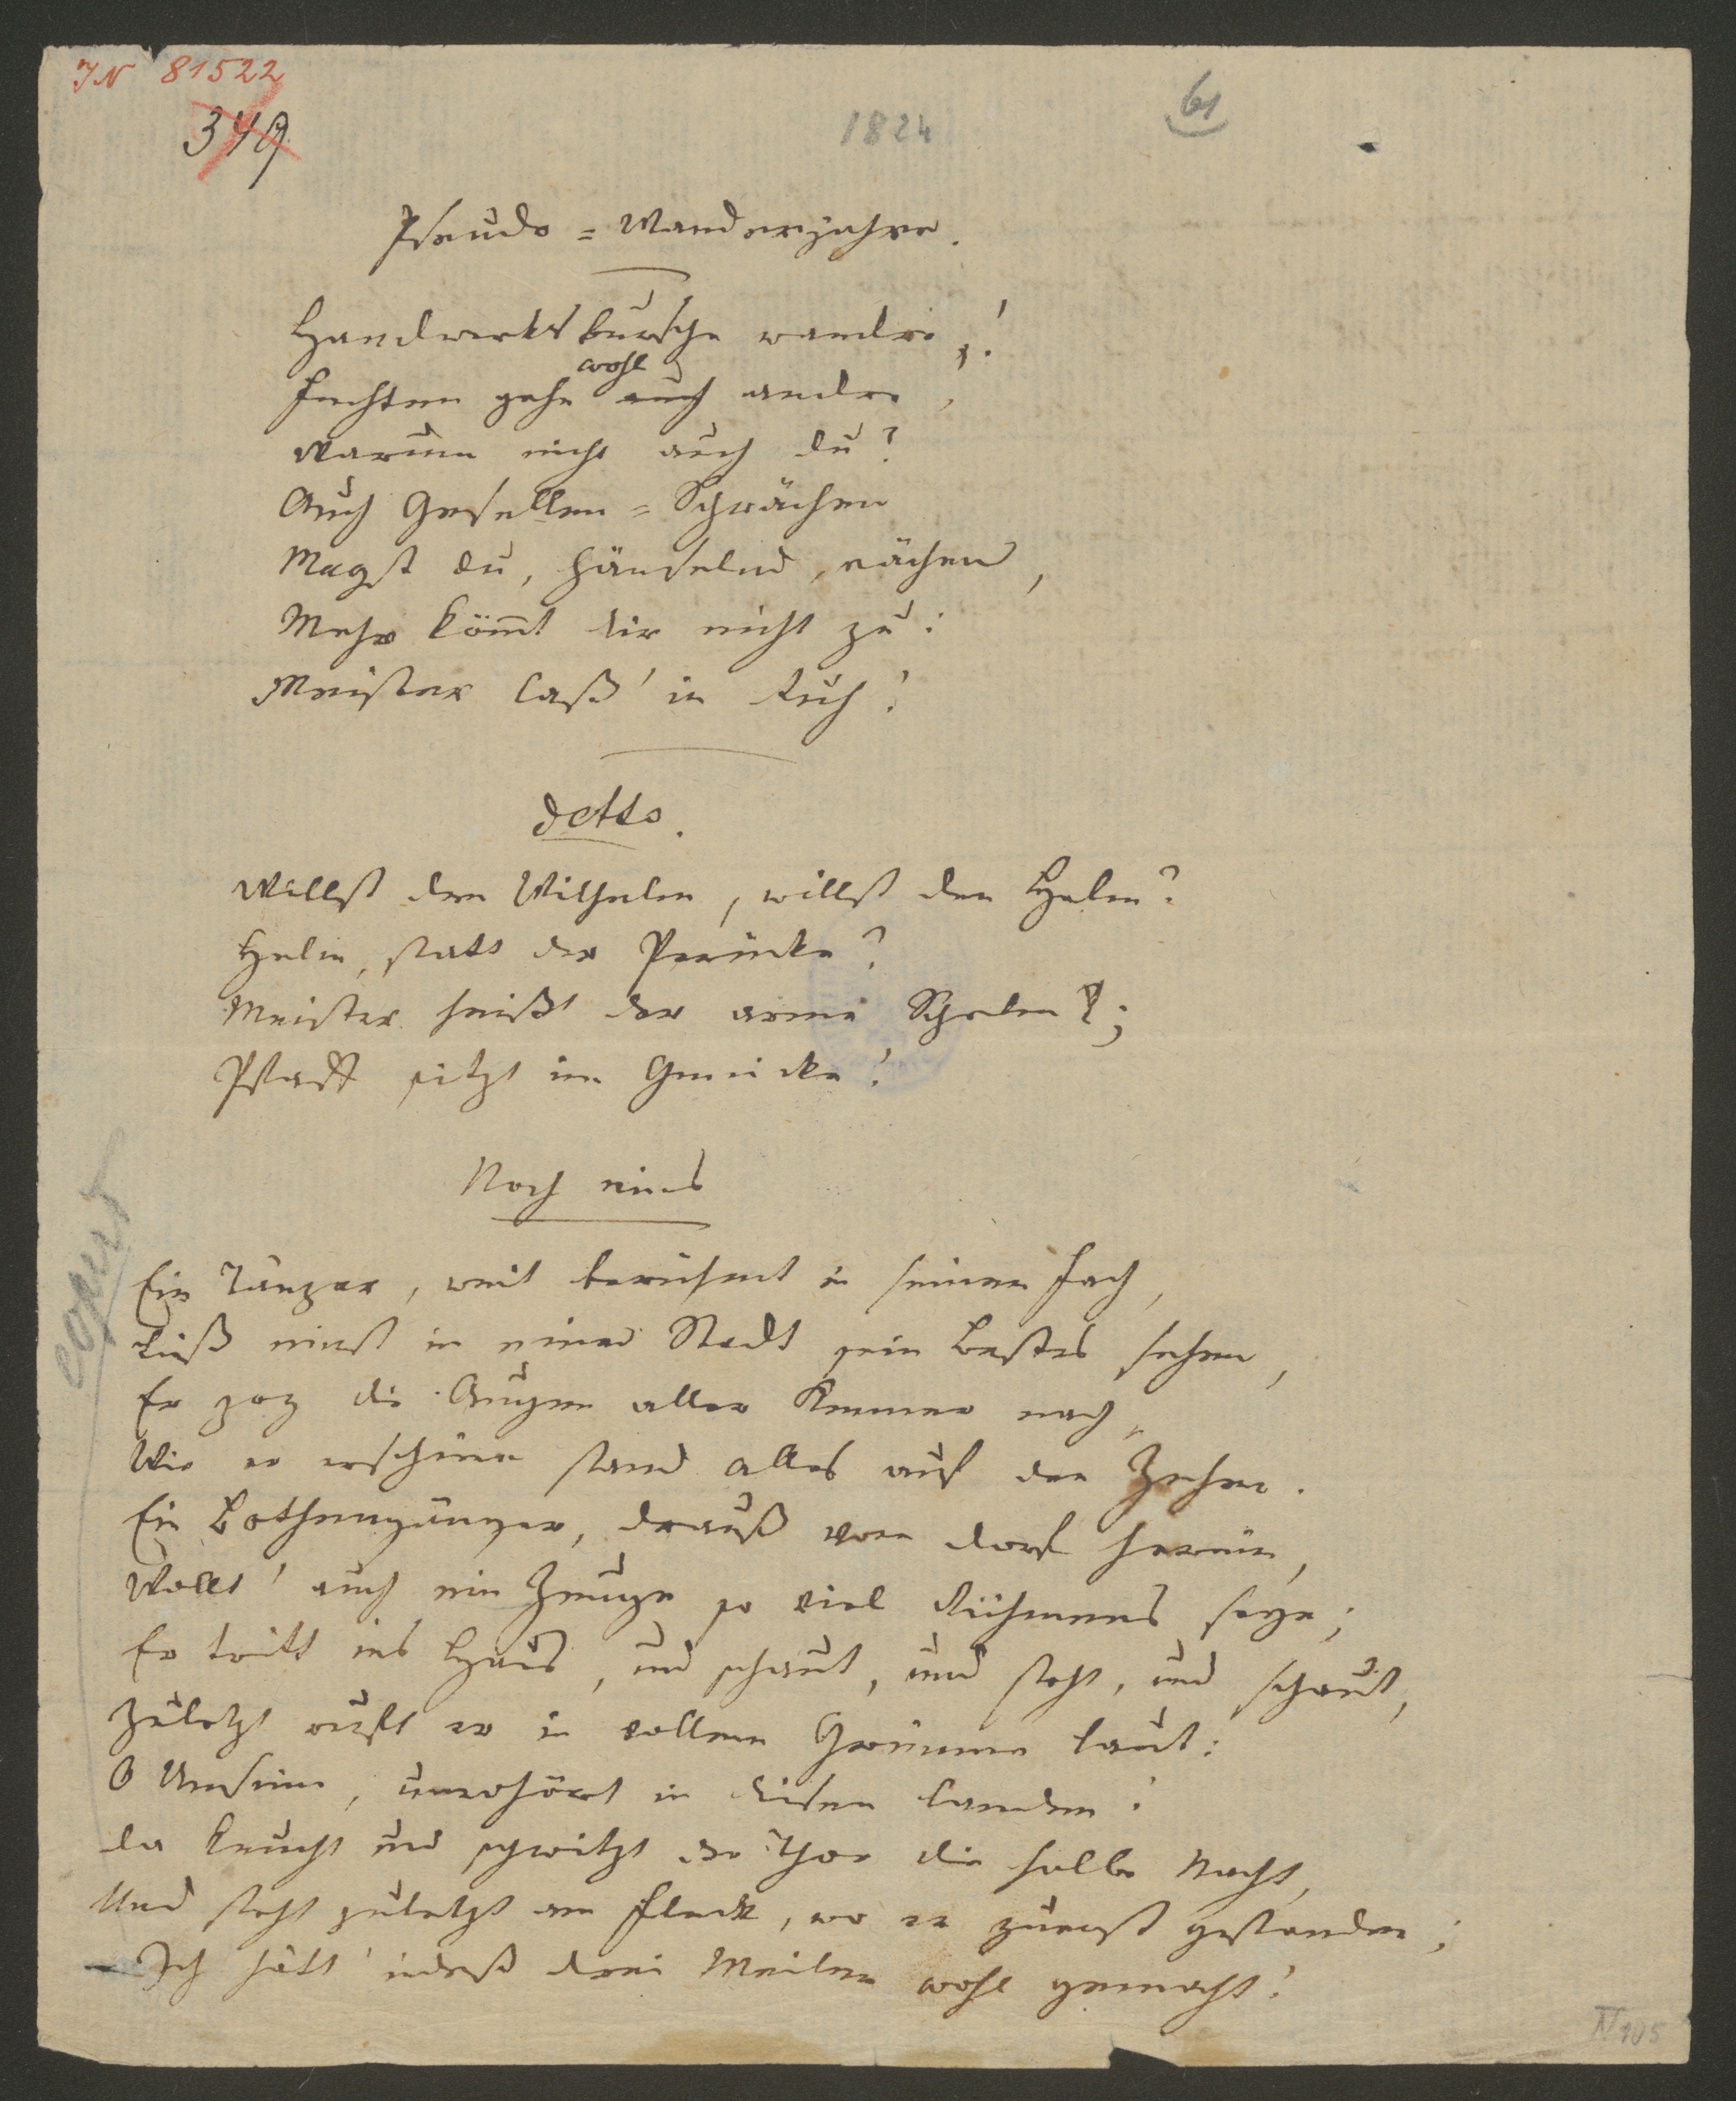 JN 81522
349
1824
61
Pseudo=Wanderjahre.
Handwerksbursche wandre!
wohl
Fechten gehn auch andre,
Warum nicht auch du?
Auch Gesellen=Schwächen
Magst du, hänselnd, rächen,
Mehr kömt dir nicht zu:
Meister laß' in Ruh!
detto.
Willst den Wilhelm, willst den Helm?
Helm, statt der Perücke?
Meister heißt der arme Schelm;
Pfaff sitzt im Genicke!
Noch eins
Ein Tänzer, weit berühmt in seinem Fach,
Ließ einst in einer Stadt sein Bestes sehen,
Er zog die Augen aller Kenner nach,
Wie er erschien stand alles auf den Zehen.
Ein Bothengänger, drauß vom Dorf herein,
Wollt' auch ein Zeuge so viel Rühmens seyn;
Er tritt ins Haus, und schaut, und steht, und schaut,
Zuletzt ruft er in vollem Grimme laut:
O Unsinn, unerhört in diesen Landen!
Da keucht und schwitzt der Thor die halbe Nacht,
Und steht zuletzt am Fleck, wo er zuerst gestanden;
Ich hätt' indeß drei Meilen wohl gemacht!
copiert
IV 105